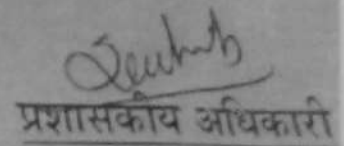 प्रशासकीय अधिकारी